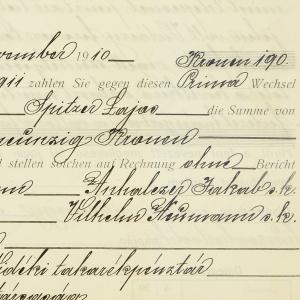 vember 1910— Kronen 190.
911 zahlen Sie gegen diesen Prima Wechsel
Spitzer Lajos— die Summe von
neunzig Kronen
stellen solchen auf Rechnung ohne— Bericht
Anhalzer Jakab s.k.
Vilhelm Neumann s.k.
Vidéki takarékpénztár